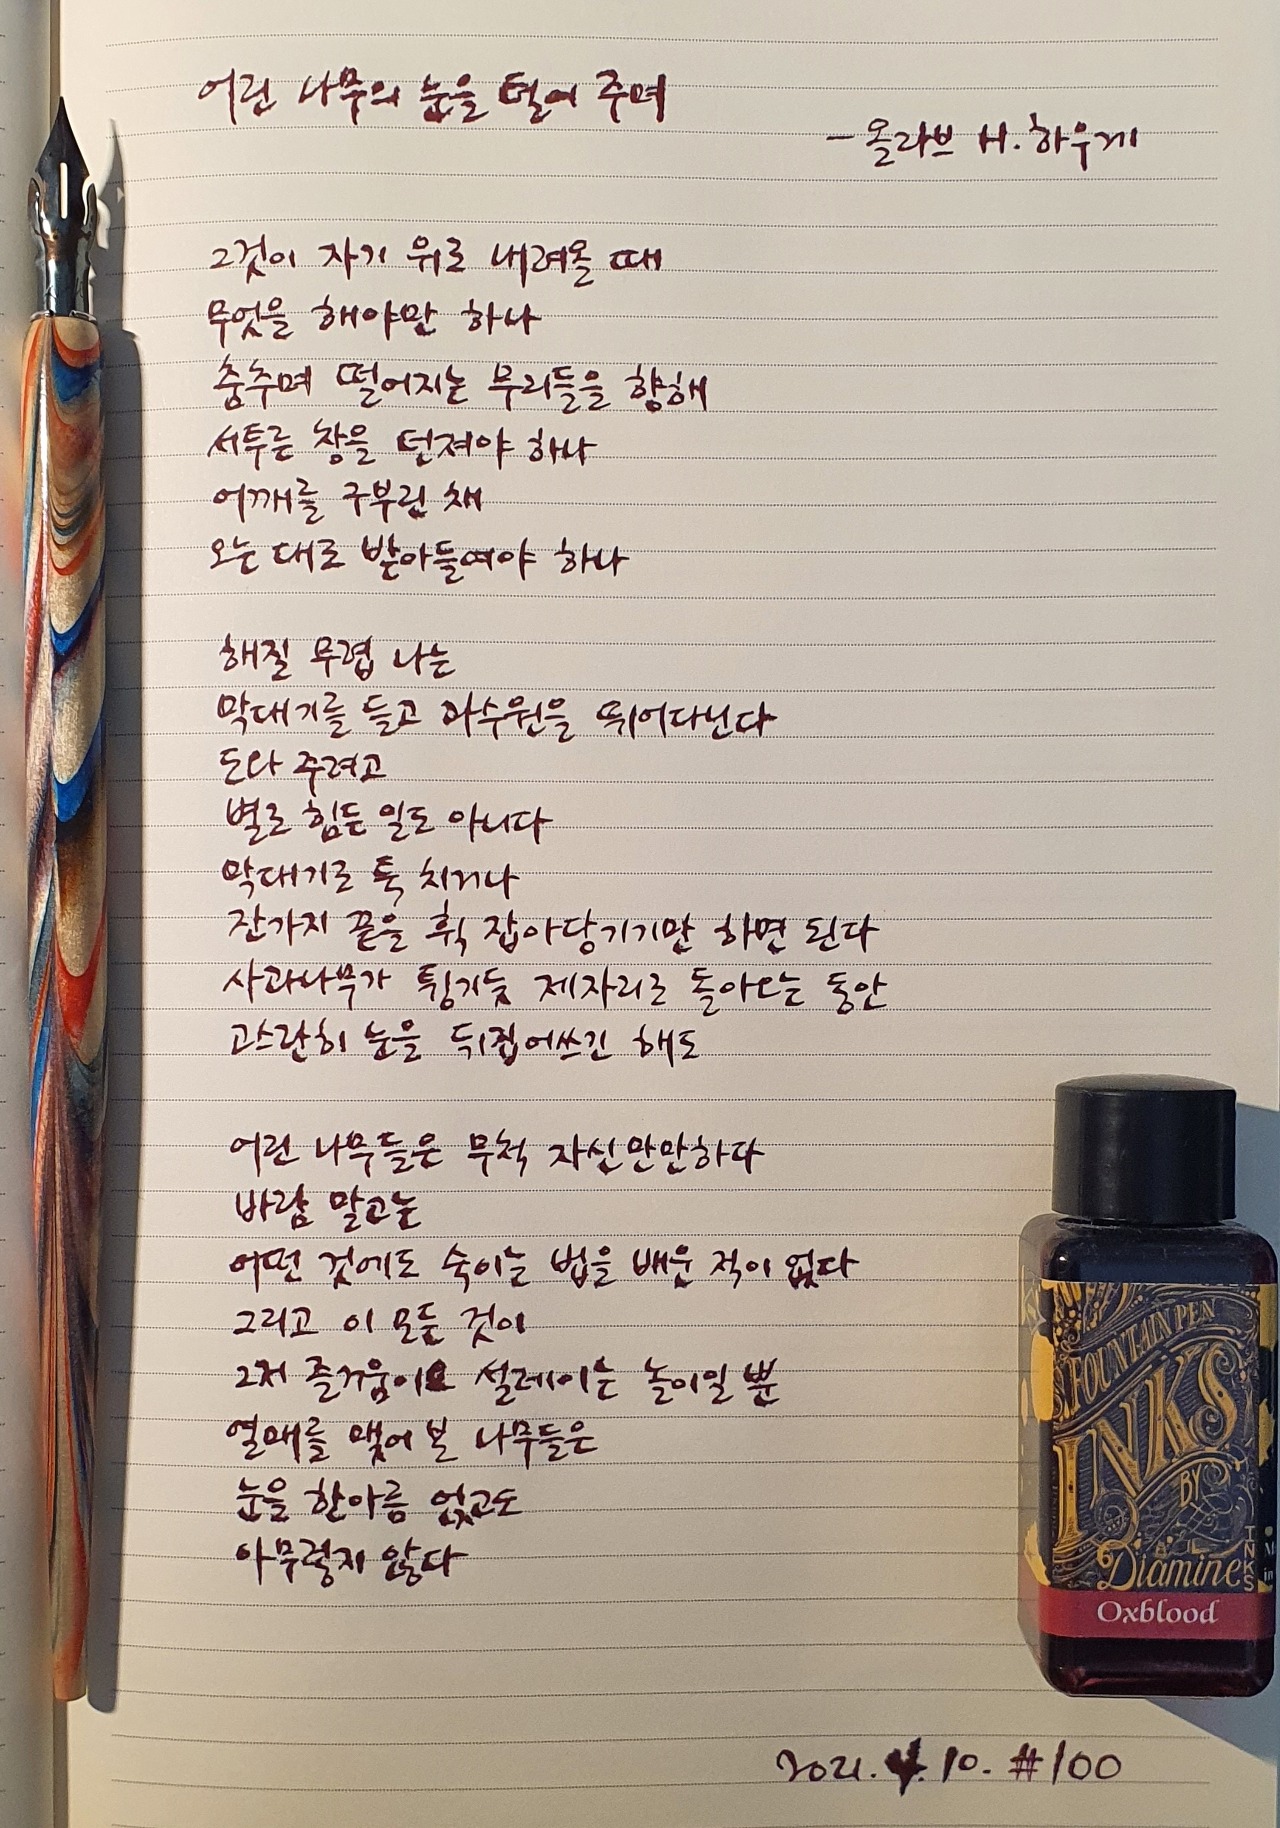 어린 나무의 눈을 털어 주며
- 올라브 H. 하우게
그것이 자기 위로 내려올 때
무엇을 해야만 하나
춤추며 떨어지는 무리들을 향해
서투른 창을 던져야 하나
어깨를 구부린 채
오는 대로 받아들여야 하나
해질 무렵 나는
막대기를 들고 과수원을 뛰어다닌다
도와 주려고
별로 힘든 일도 아니다
막대기로 툭 치거나
잔가지 끝을 휙 잡아당기기만 하면 된다
사과나무가 튕기듯 제자리로 돌아오는 동안
고스란히 눈을 뒤집어쓰긴 해도
어린 나무들은 무척 자신만만하다
바람 말고는
어떤 것에도 숙이는 법을 배운 적이 없다
그리고 이 모든 것이
그저 즐거움이요 설레이는 놀이일 뿐
열매를 맺어 본 나무들은
눈을 한아름 얹고도
아무렇지 않다
FOUNTAIN PEN
INKS
BY
Diamine
INKS
Oxblood
2021. 4. 10. #100